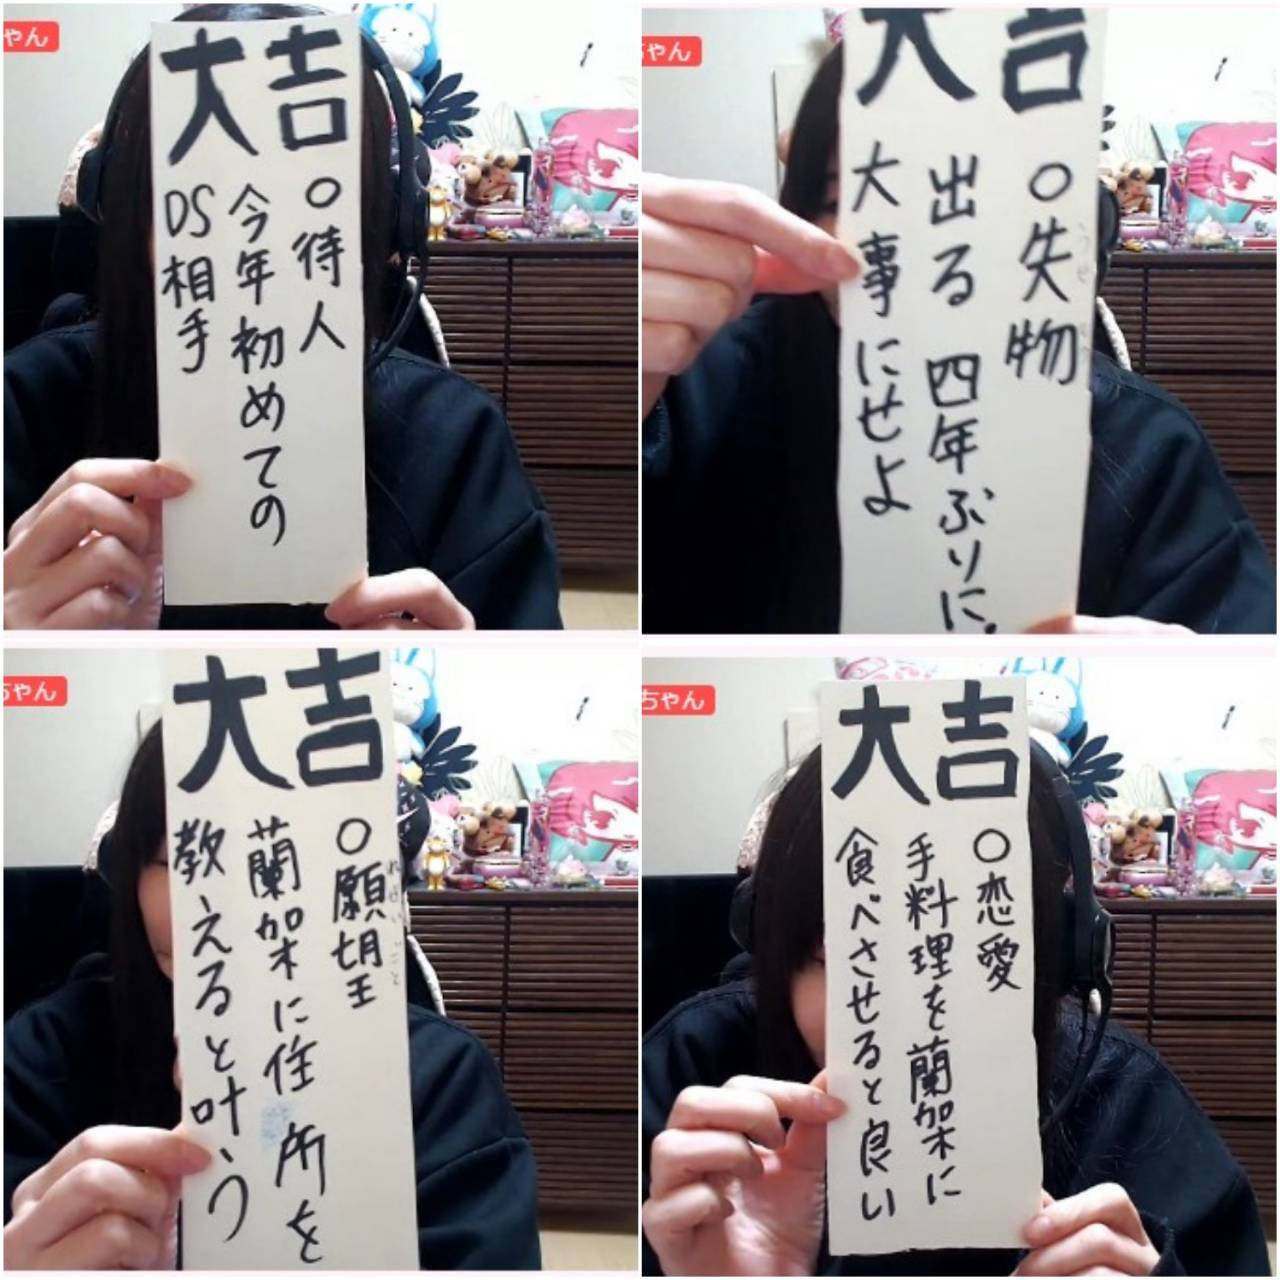 ゃん
大吉
〇待人
今年初めての
DS相手
ちゃん
大吉
〇失物
うせ
出る 四年ぶりに.
大事にせよ
ちゃん
大吉
〇願望
ねがいごと
蘭架に住所を
教えると叶う
ちゃん
大吉
〇恋愛
手料理を蘭架に
食べさせると良い